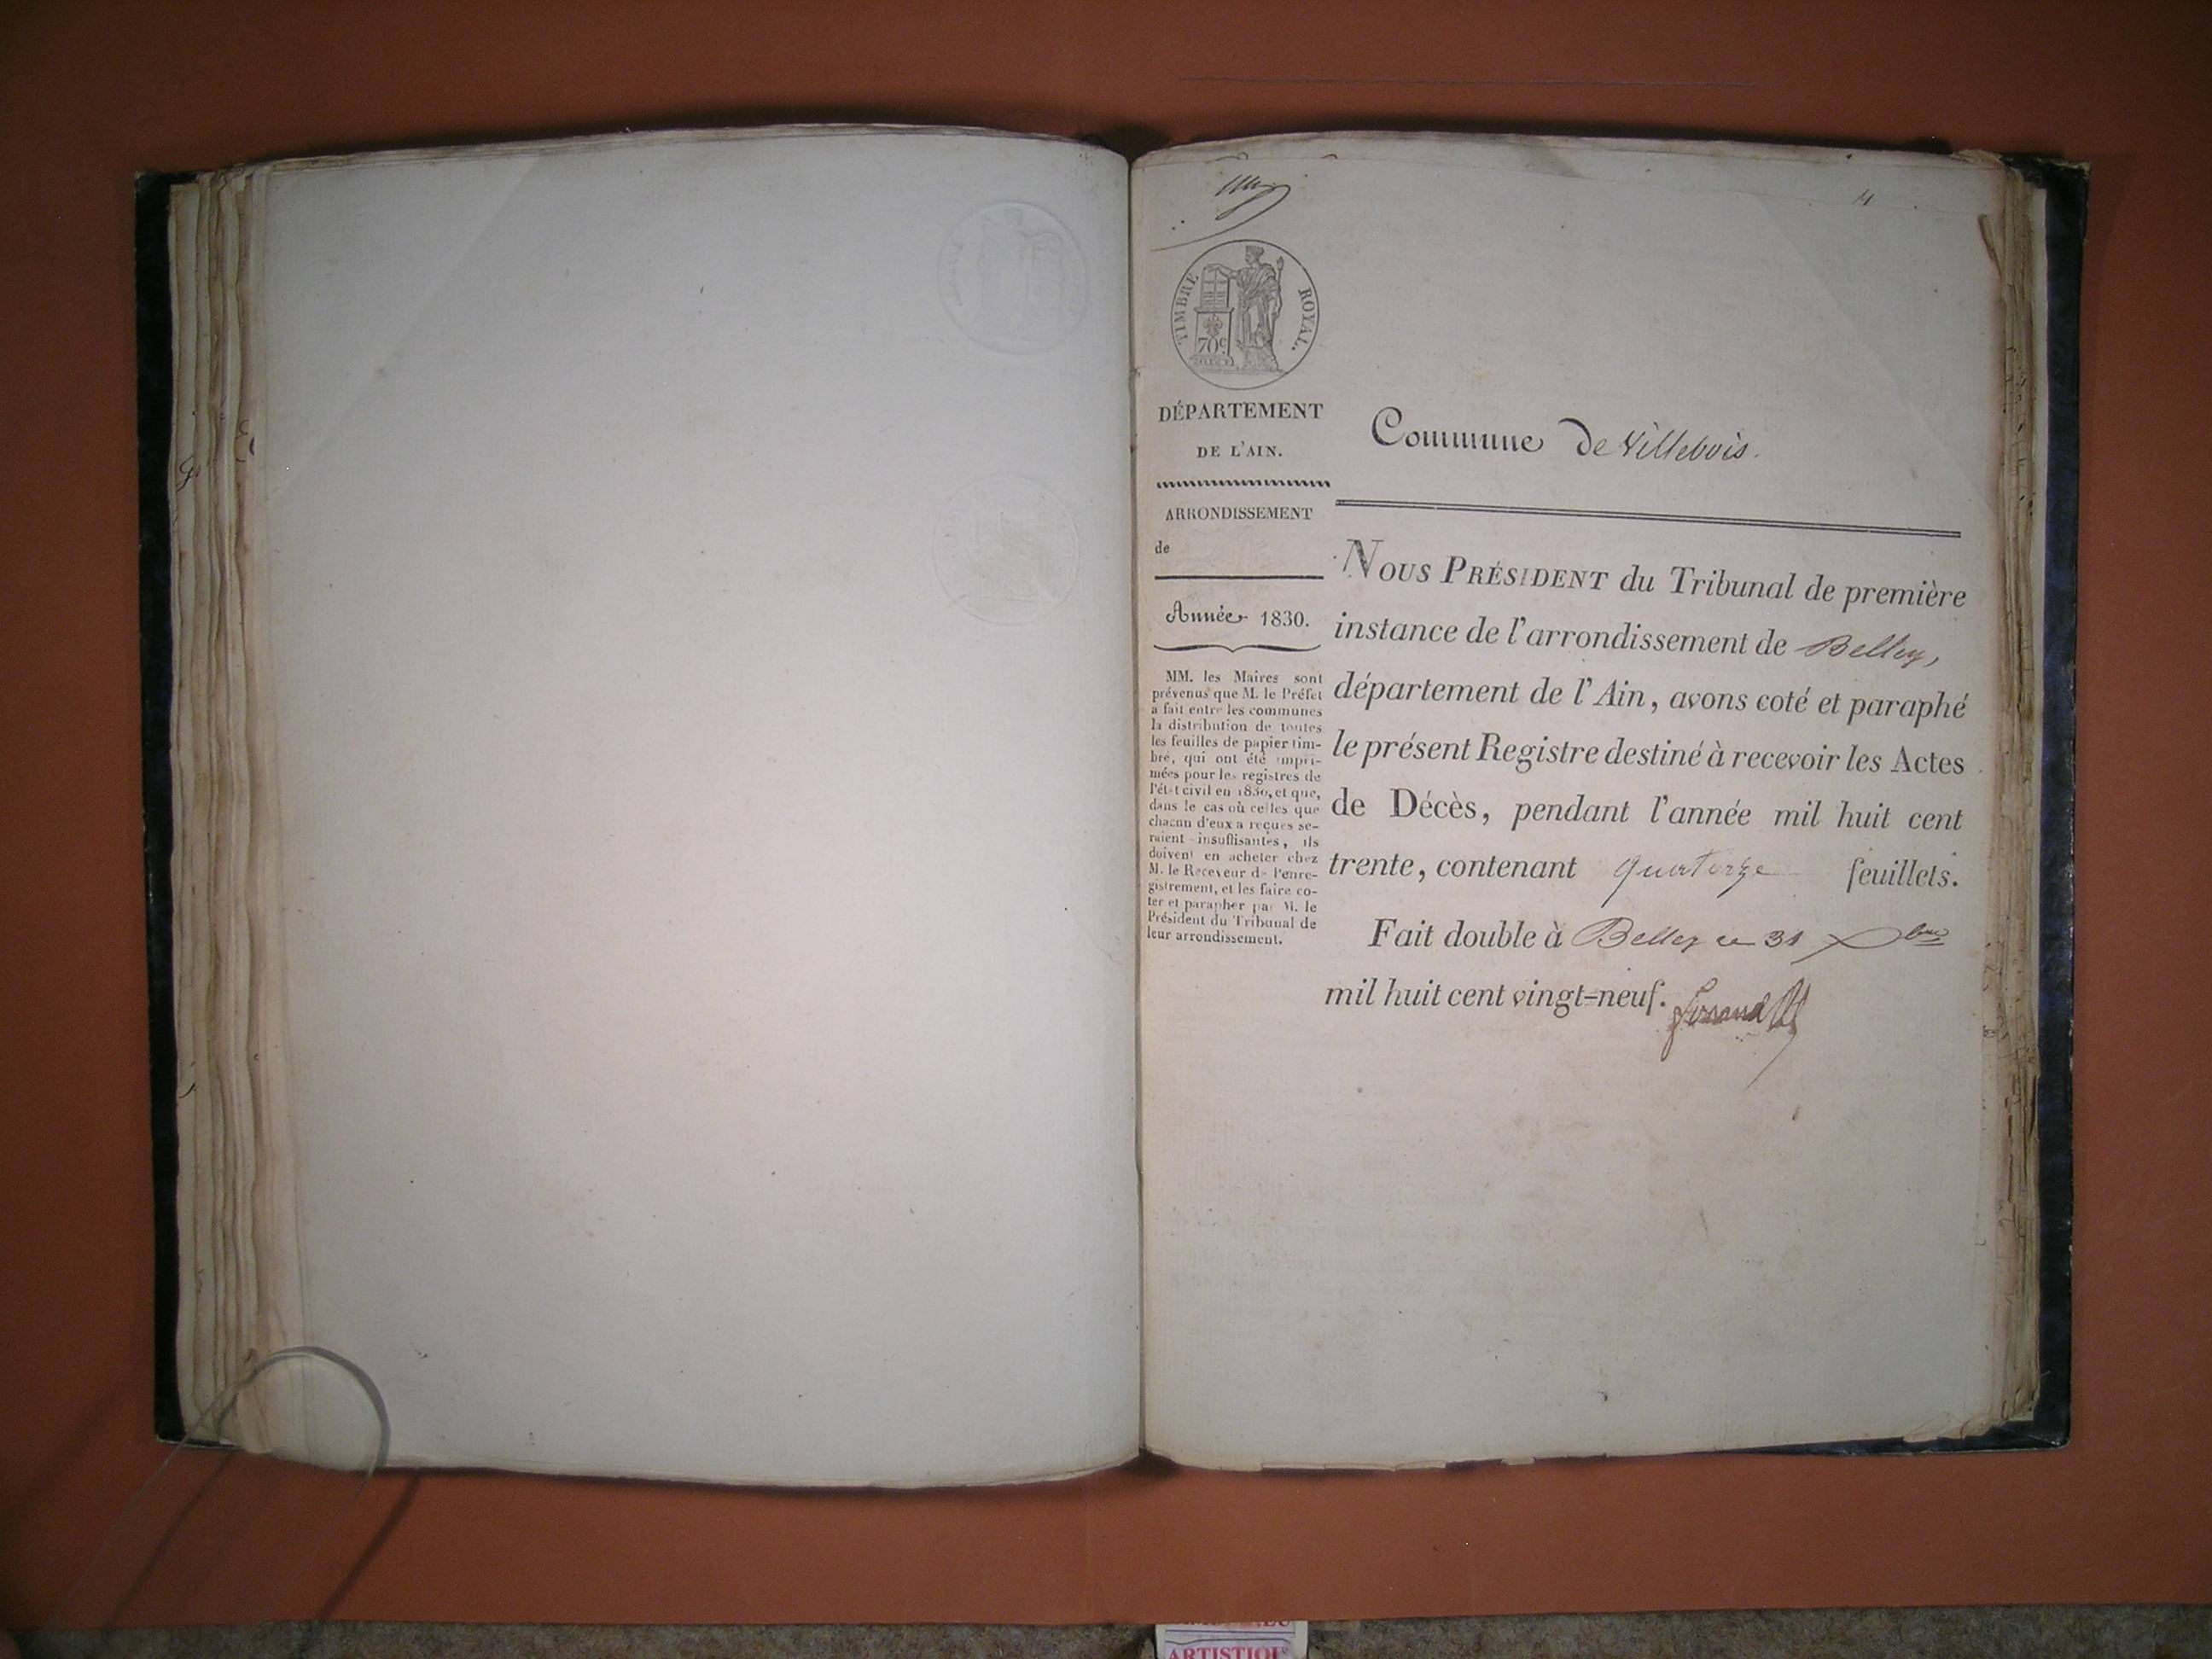 TIMBRE ROYAL.
70 c
DÉPARTEMENT
DE L'AIN.
ARRONDISSEMENT
de
Année 1830.
MM. les Maires sont
prévenus que M. le Préfet
a fait entre les communes
la distribution de toutes
les feuilles de papier tim-
bré, qui ont été impri-
mées pour les registres de
l'état civil en 1830, et que,
dans le cas où celles que
chacun d'eux a reçues se-
raient insuffisantes, ils
doivent en acheter chez
M. le Receveur de l'enre-
gistrement, et les faire co-
ter et parapher par M. le
Président du Tribunal de
leur arrondissement.
Commune de Villebois.
NOUS PRÉSIDENT du Tribunal de première
instance de l'arrondissement de Belley,
département de l'Ain, avons coté et paraphé
le présent Registre destiné à recevoir les Actes
de Décès, pendant l'année mil huit cent
trente, contenant quatorze feuillets.
Fait double à Belley ce 31 Xbre
mil huit cent vingt-neuf.
ARTISTIQUE